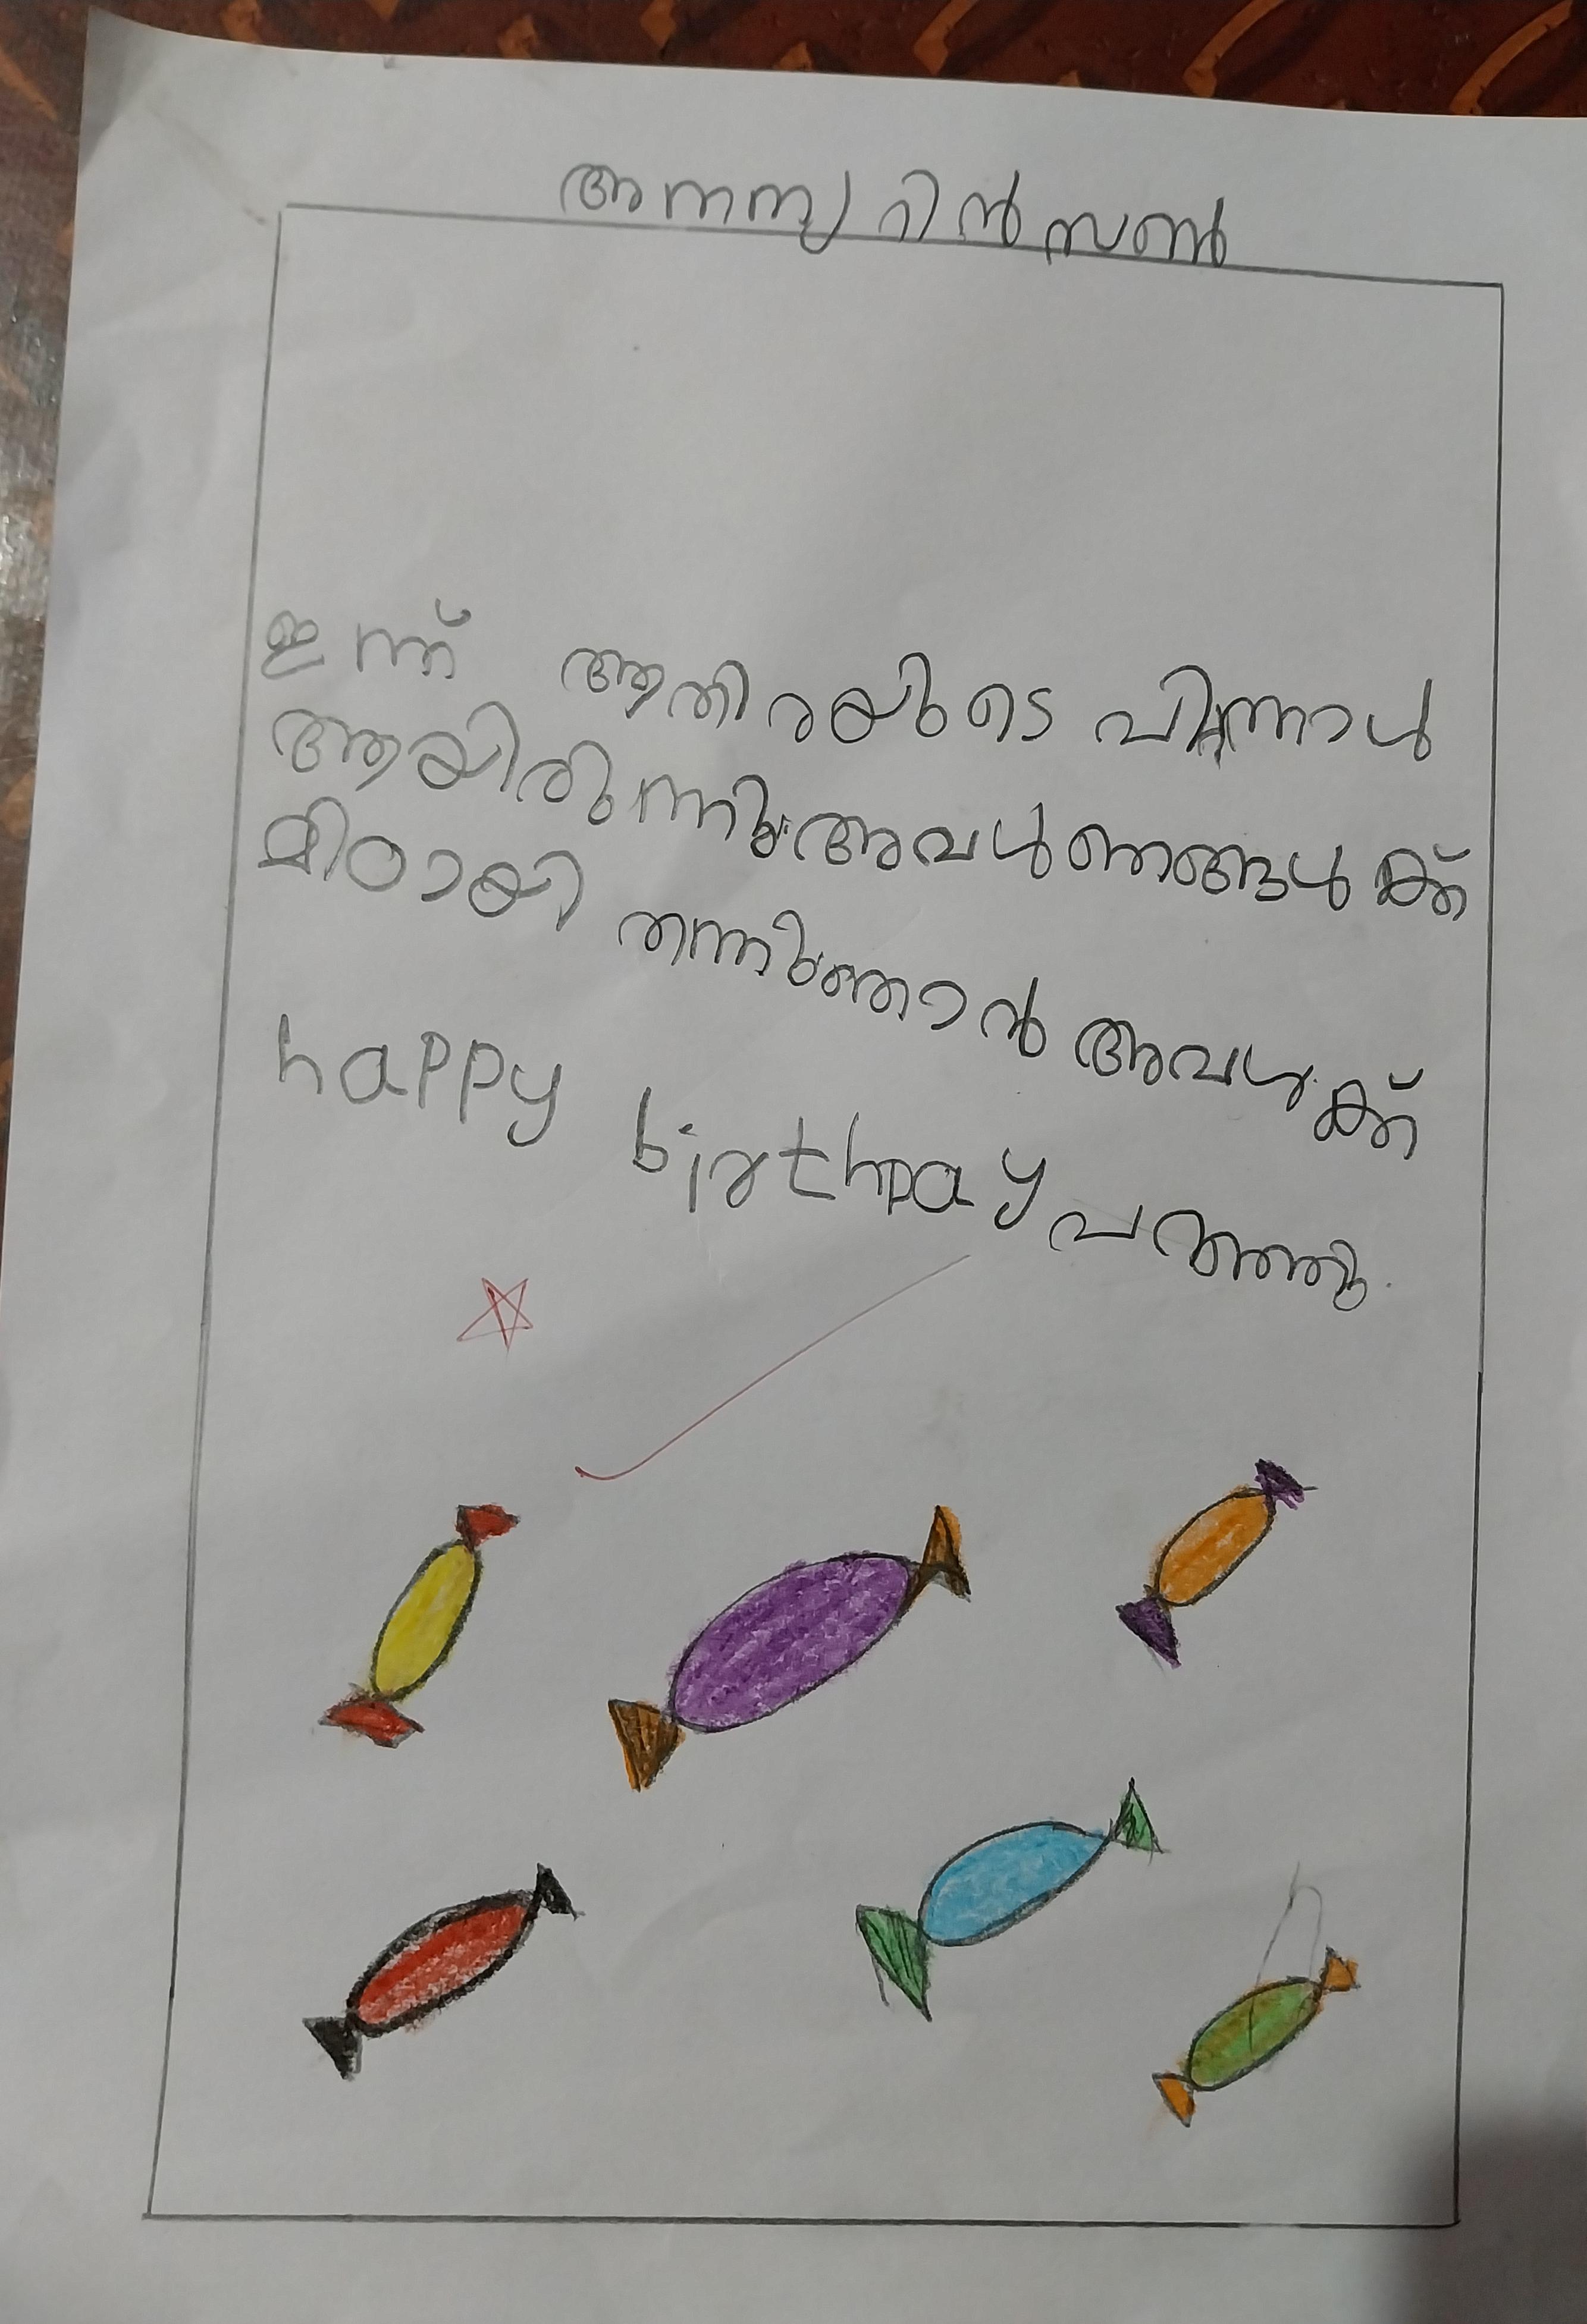 അനന്യ റിൻസൺ
ഇന്ന് ആതിരയുടെ പിന്നാൾ
ആയിരുന്നു. അവൾ ഞങ്ങൾക്ക്
മിഠായി തന്നു. ഞാൻ അവൾക്ക്
happy birthpay പറഞ്ഞു.